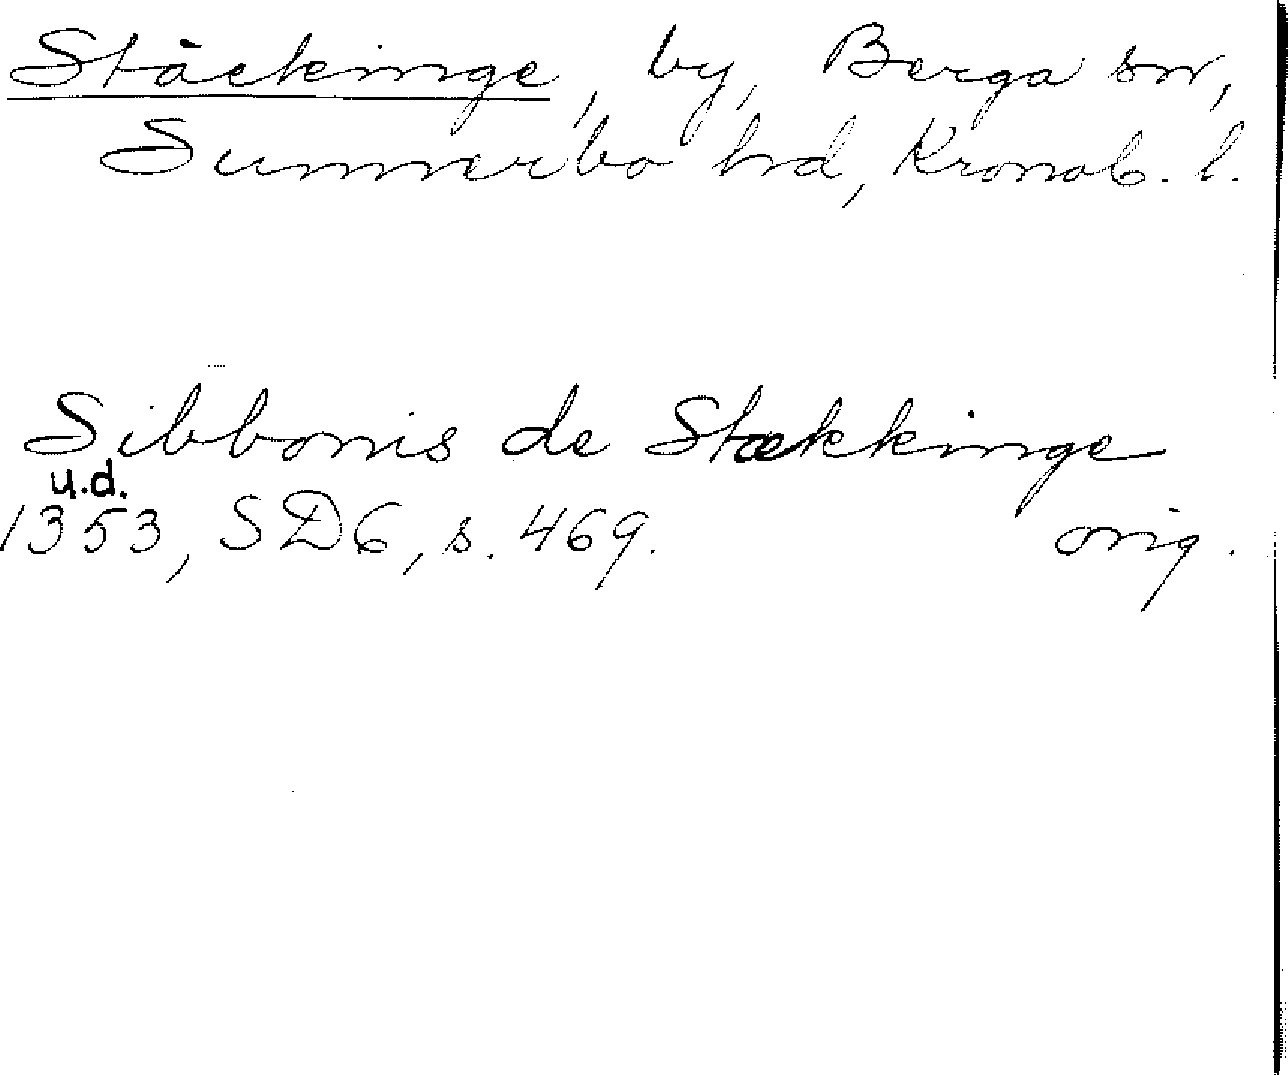 Stäckinge, by, Berga sn,
Sunnerbo hd, Kronob. l.
Sibbonis de Stækkinge
u.d.
1353, SD6, s. 469. orig.